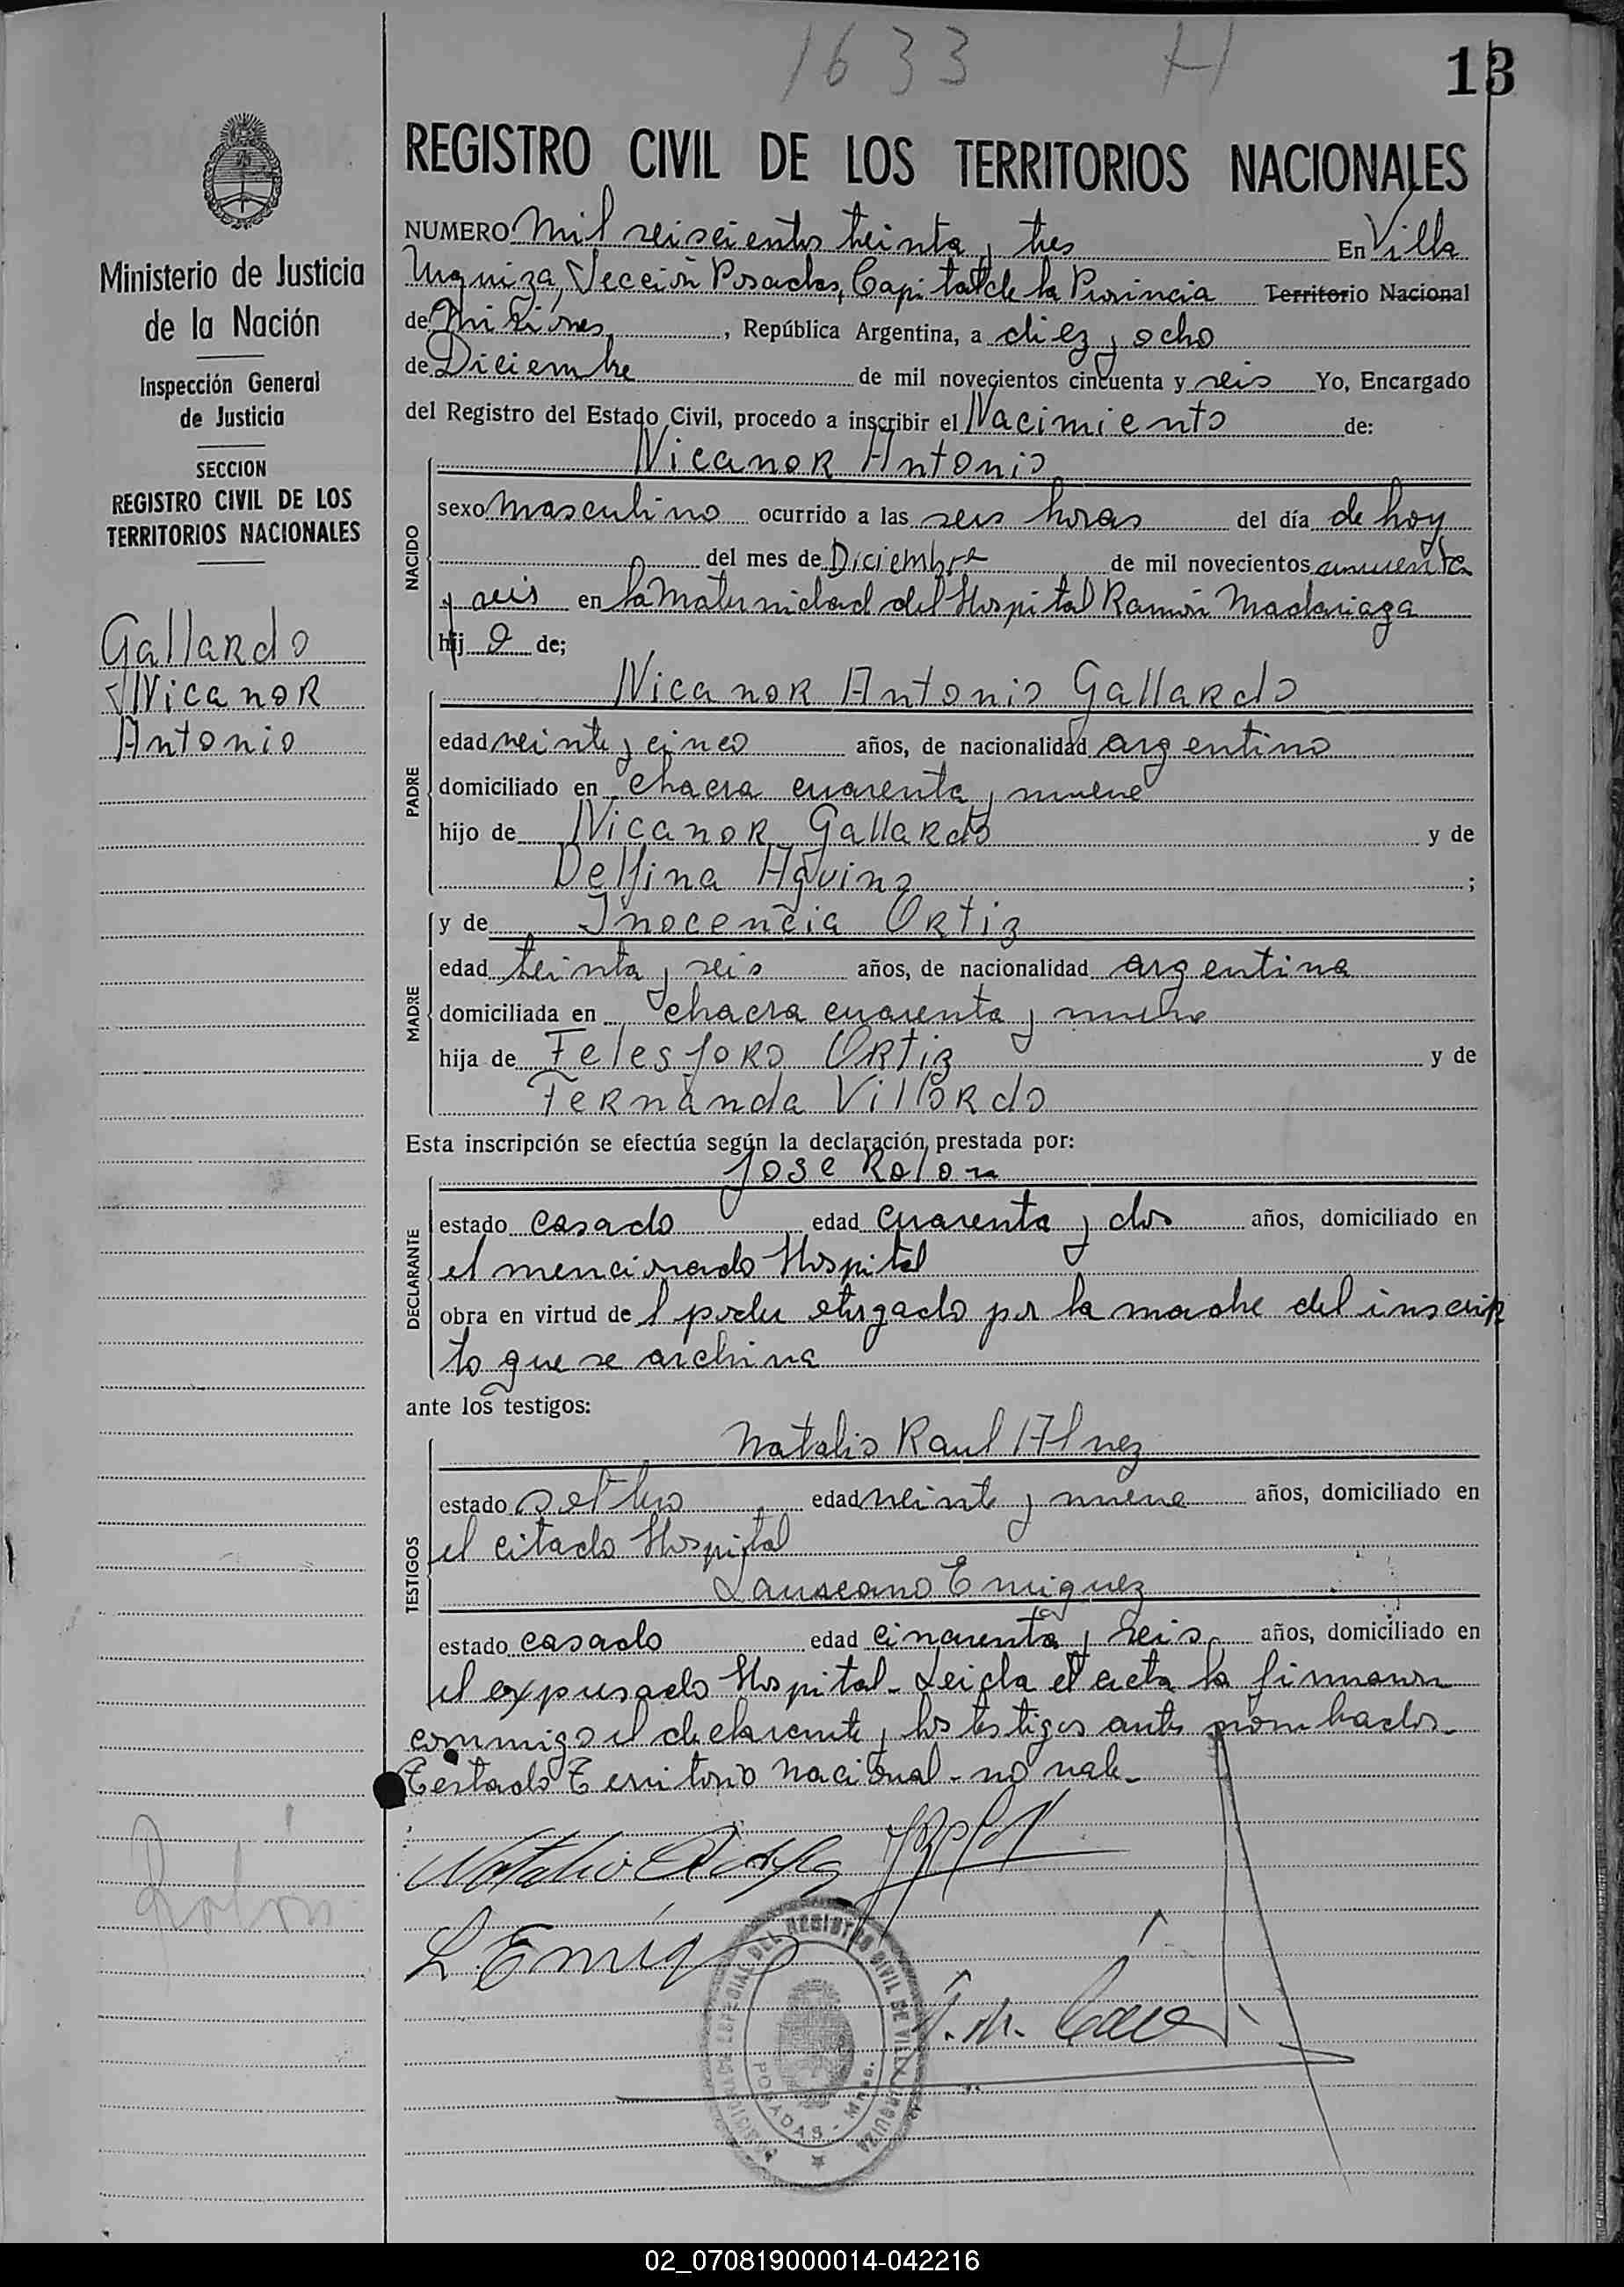 1633 H
13
REGISTRO CIVIL DE LOS TERRITORIOS NACIONALES
Ministerio de Justicia
de la Nación
Inspección General
de Justicia
SECCION
REGISTRO CIVIL DE LOS
TERRITORIOS NACIONALES
Gallardo
Nicanor
Antonio
Rolón
NUMERO Mil seiscientos treinta y tres En Villa
Urquiza, Sección Posadas, Capital de la Provincia Territorio Nacional
de Misiones, República Argentina, a diez y ocho
de Diciembre de mil novecientos cincuenta y seis Yo, Encargado
del Registro del Estado Civil, procedo a inscribir el Nacimiento de:
Nicanor Antonio
NACIDO
sexo masculino ocurrido a las seis horas del día de hoy
del mes de Diciembre de mil novecientos cincuenta
y seis en la Maternidad del Hospital Ramón Madariaga
hij o de;
Nicanor Antonio Gallardo
PADRE
edad veinte y cinco años, de nacionalidad argentino
domiciliado en chacra cuarenta y nueve
hijo de Nicanor Gallardo y de
Delfina Aquino ;
y de Inocencia Ortiz
MADRE
edad treinta y seis años, de nacionalidad argentina
domiciliada en chacra cuarenta y nueve
hija de Telesforo Ortiz y de
Fernanda Villordo
Esta inscripción se efectúa según la declaración prestada por:
Jose Rolon
DECLARANTE
estado casado edad cuarenta y dos años, domiciliado en
el mencionado Hospital
obra en virtud de l poder otorgado por la madre del inscrip
to que se archiva
ante los testigos:
Natalio Raul
TESTIGOS
estado soltero edad veinte y nueve años, domiciliado en
el citado Hospital
Laureano Emiguez
estado casado edad cincuenta y seis años, domiciliado en
el expresado Hospital. Leida el acta la firmaron
conmigo el declarante y los testigos antes nombrados.
Testado Territorio Nacional - no vale -
Natalio
L Emig
REGISTRO CIVIL DE VILLA URQUIZA
POSADAS - Mnes.
02_070819000014-042216